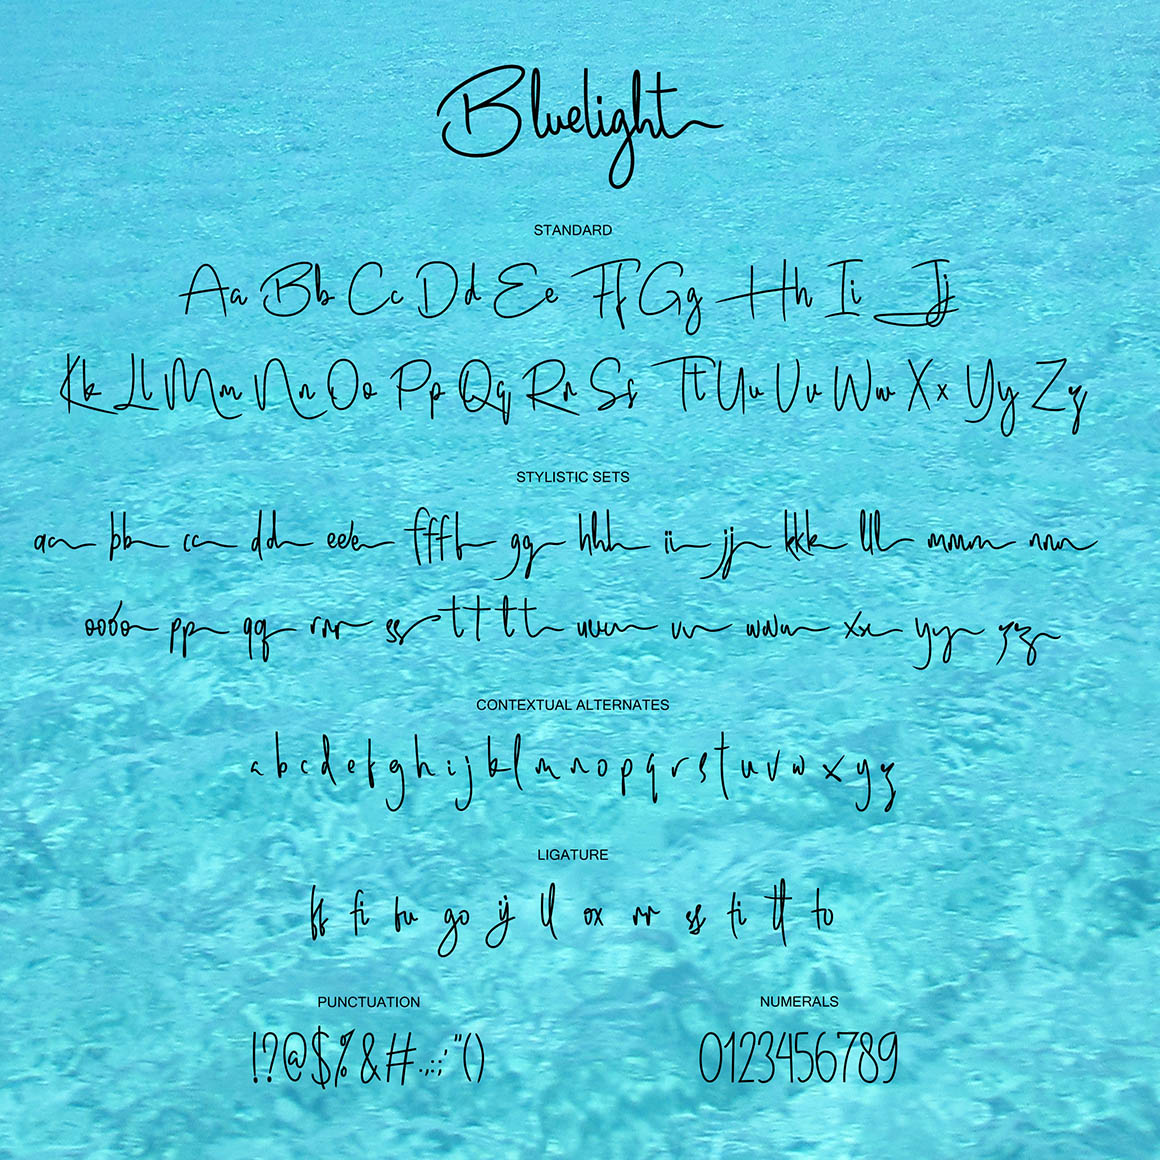 Bluelight
STANDARD
Aa Bb Cc Dd Ee Ff Gg Hh Ii Jj
Kk Ll Mm Nn Oo Pp Qq Rr Ss Tt Uu Vv Ww Xx Yy Zz
STYLISTIC SETS
aa bb cc dd eee ffff gg hhh ii jj kkk lll mmm nnn
oooo pp qq rrr ss tttt uuu vv www xx yy zz
CONTEXTUAL ALTERNATES
a b c d e f g h i j k l m n o p q r s t u v w x y z
LIGATURE
ff fi fu go ij ll ox rr ss ti tt to
PUNCTUATION NUMERALS
!?@$%&#.,:;'"() 0123456789